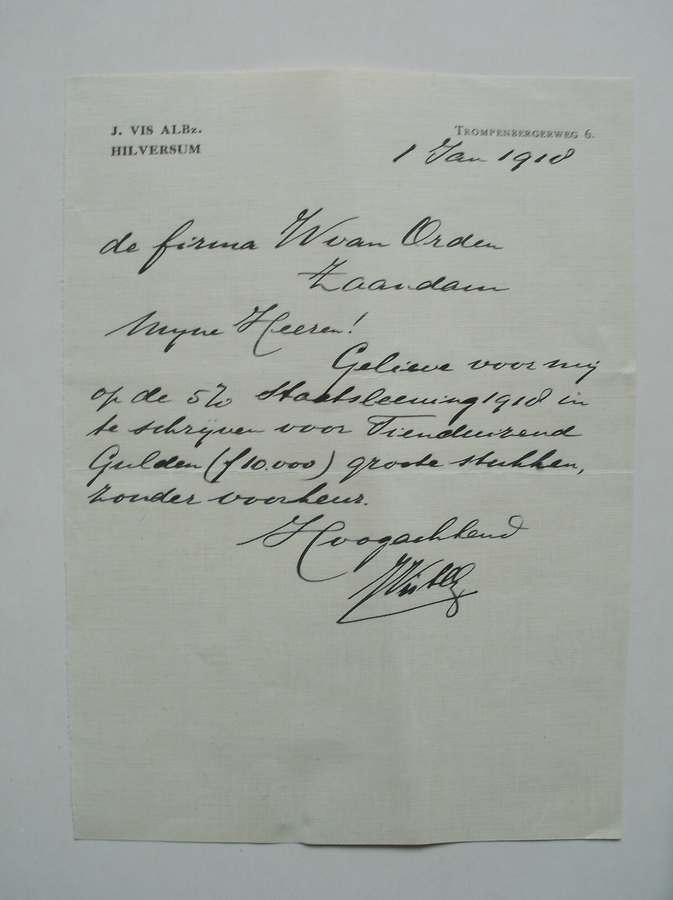 J. VIS ALBz.
HILVERSUM
TROMPENBERGERWEG 6.
1 Jan 1918
de firma W van Orden
Zaandam
Mijne Heeren!
Gelieve voor mij
op de 5% Staatsleening 1918 in
te schrijven voor Tienduizend
Gulden (f 10.000) groote stukken,
zonder voorkeur.
Hoogachtend